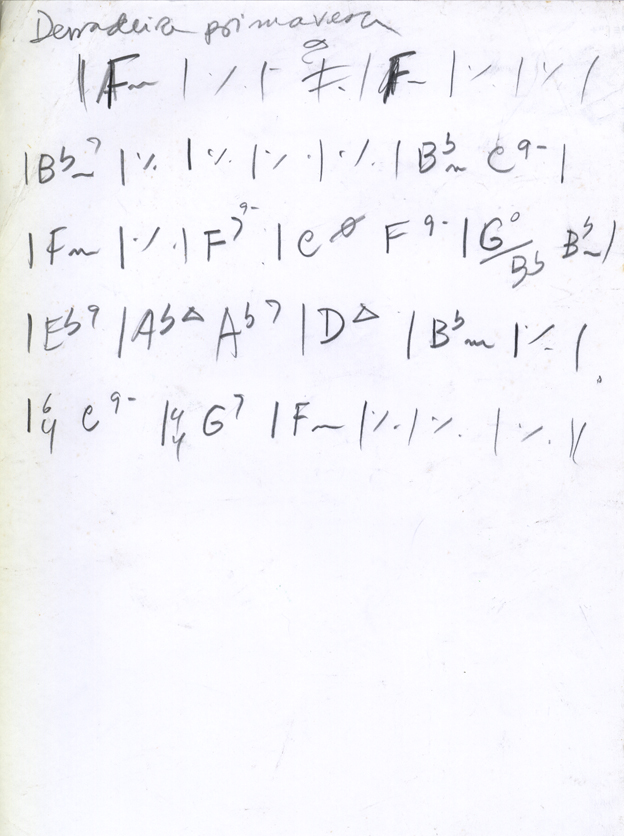 Derradeira primavera
| Fm | ٪ | | Fm | ٪ | ٪ |
| Bbm7 | ٪ | ٪ | ٪ | ٪ | Bbm C9- |
| Fm | ٪ | F79- | CØ F9- | G°/Bb Bbm |
| Eb9 | AbΔ Ab7 | DΔ | Bbm | ٪ |
| 6/4 C9- | 4/4 G7 | Fm | ٪ | ٪ | ٪ ||